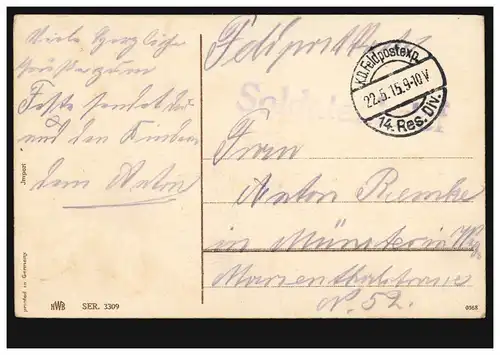 Viele herzliche
Grüße zum
Feste sendet dir
und den Kindern
dein Anton
Feldpostkarte
K.D. Feldpostexp.
22.5.15. 9-10 V
14. Res. Div.
Frau
Anton Riemke
in Münster in W
Marienthalstrasse
No. 52.
Import
printed in Germany
HWB SER. 3309
0565